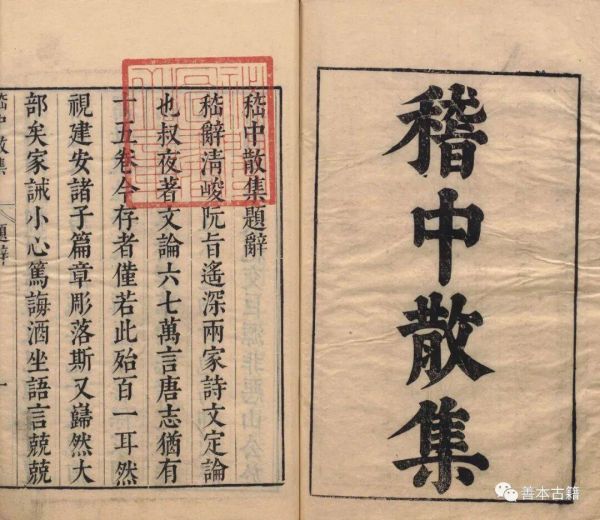 稽中散集
嵇中散集題辭
嵇辭清峻阮旨遙深兩家詩文定論
也叔夜著文論六七萬言唐志猶有
十五卷今存者僅若此殆百一耳然
視建安諸子篇章彫落斯又巋然大
部矣家誡小心篤誨酒坐語言兢兢
嵇中散集 題辭 一
善本古籍